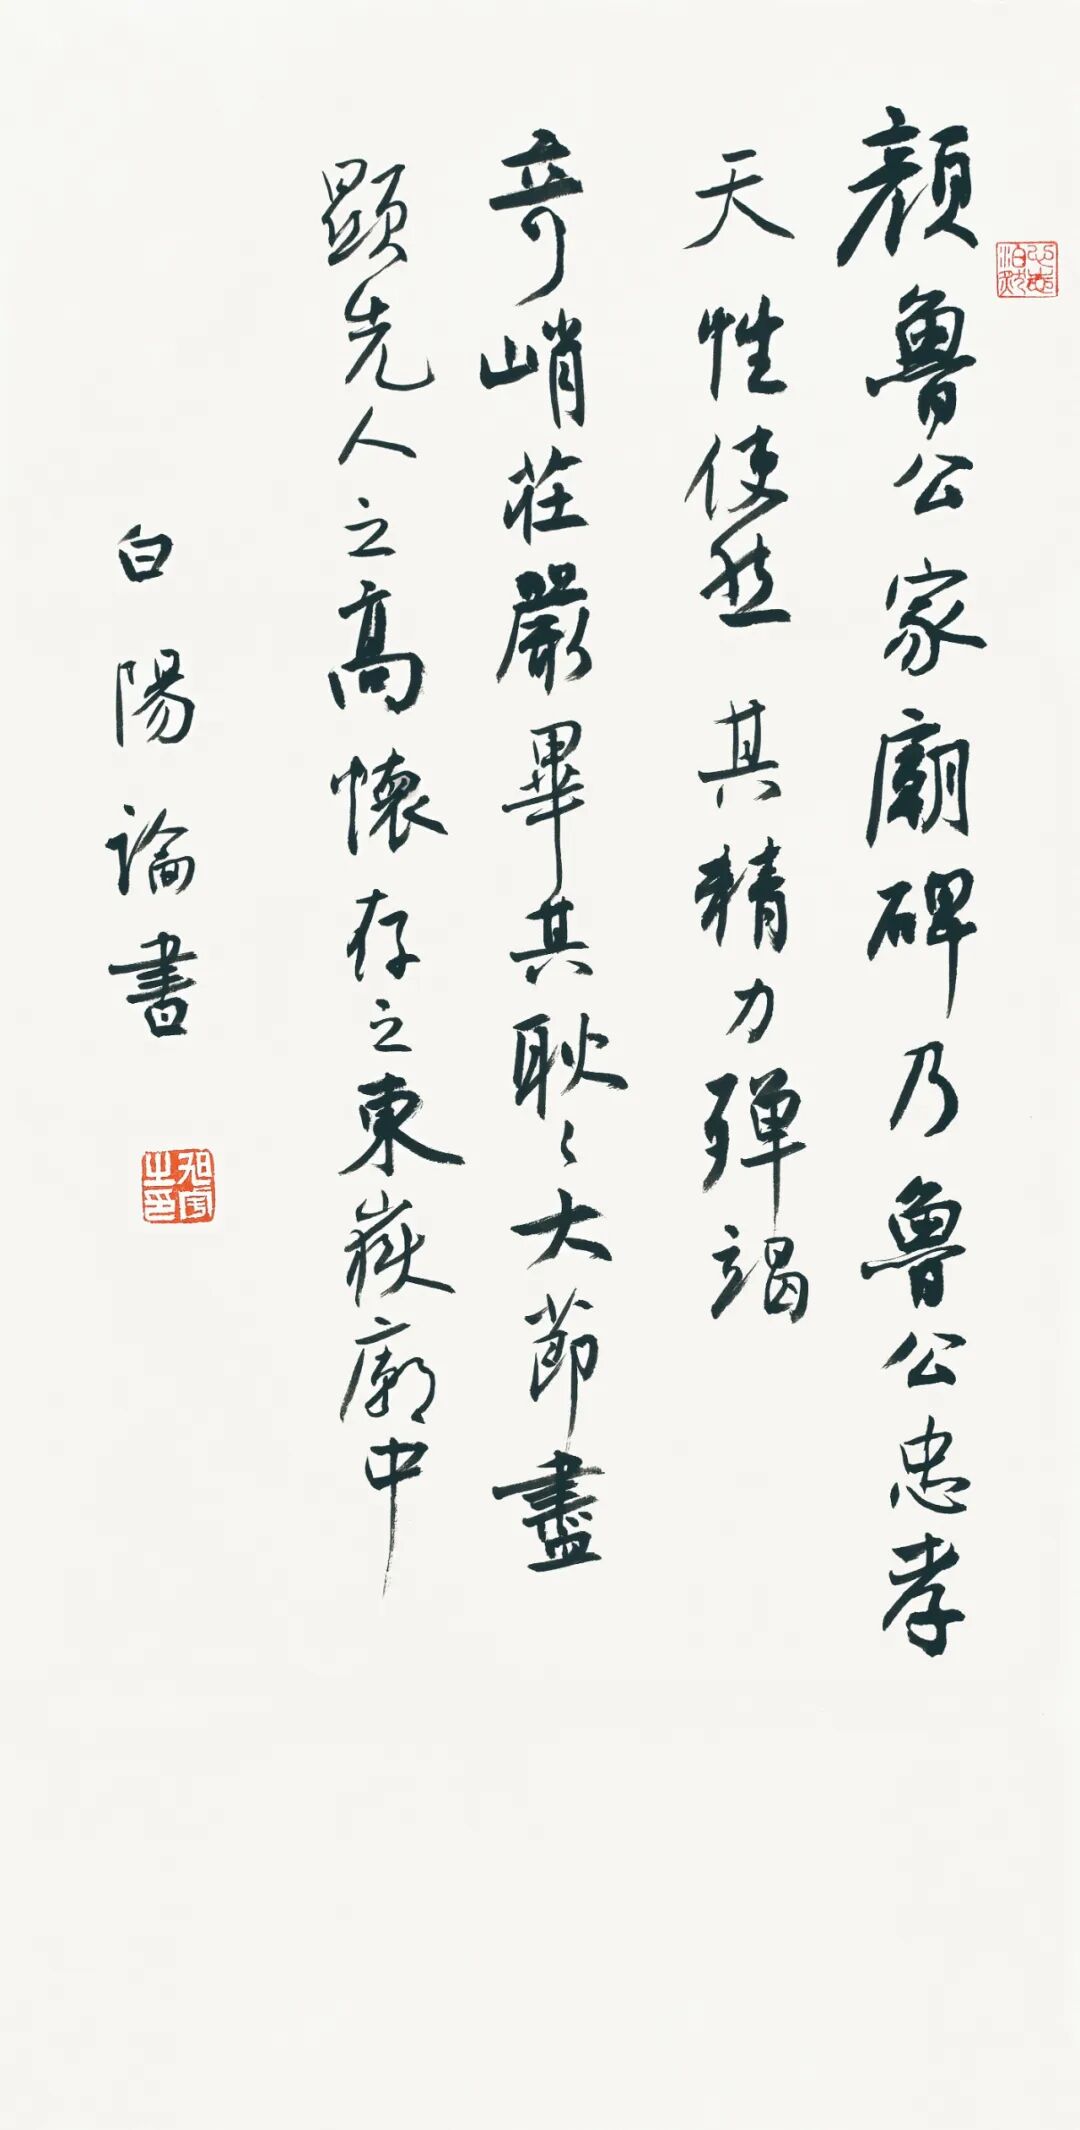 顏魯公家廟碑乃魯公忠孝
天性使然其精力殫竭
奇峭莊嚴畢其耿〻大節盡
顯先人之高懷存之東嶽廟中
白陽論書